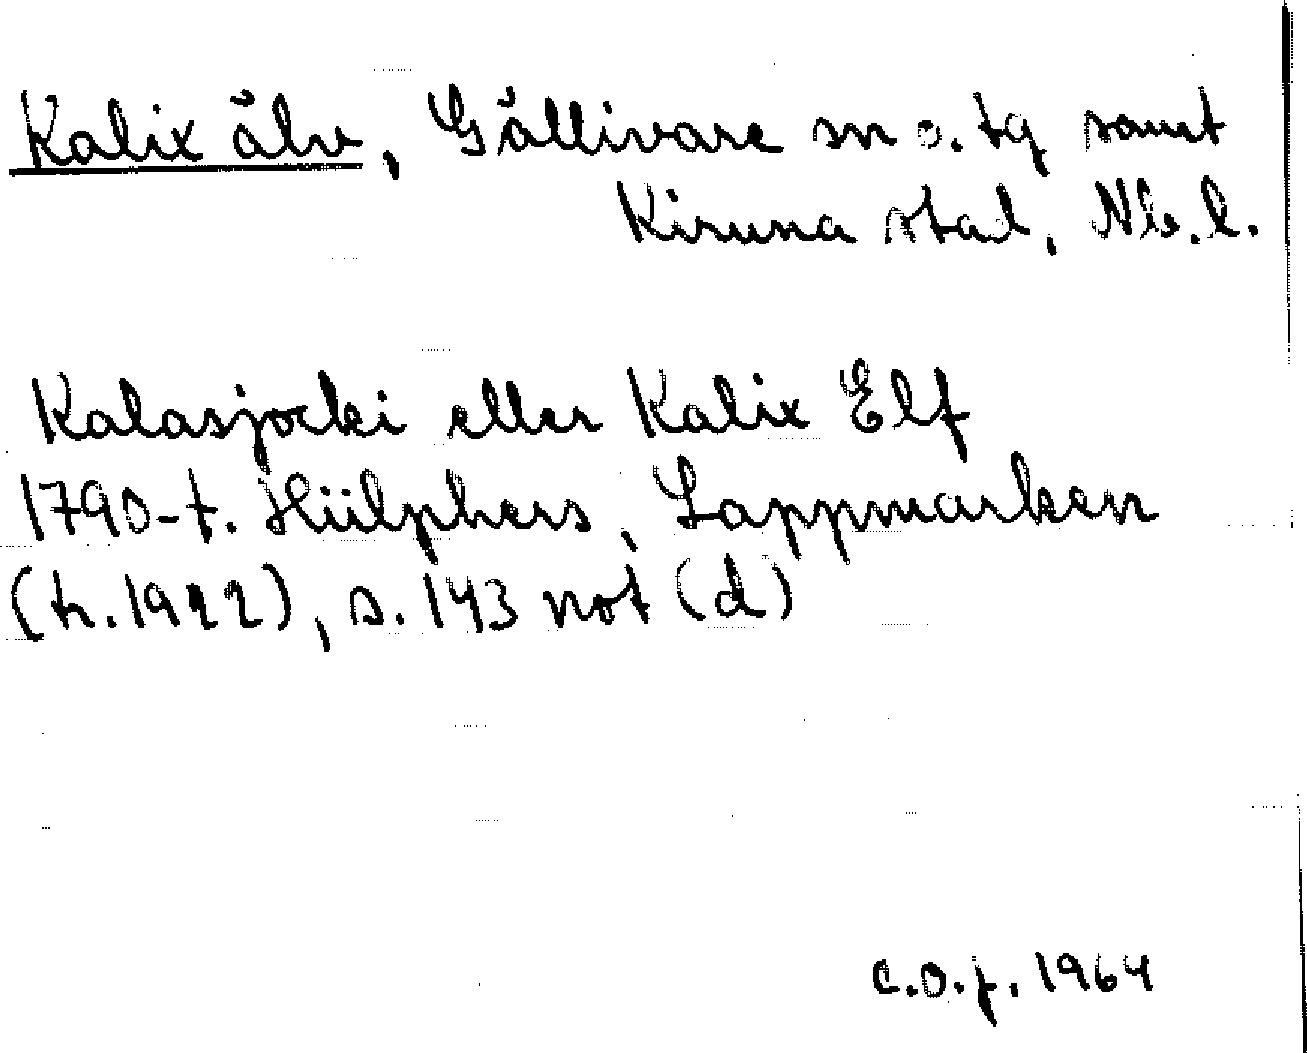 Kalix älv, Gällivare sn o. tg samt
Kiruna stad, Nb. l.
Kalasjocki eller Kalix Elf
1790-t. Hülphers, Lappmarken
(tr. 1922), s. 143 not (d)
C.O.J. 1964